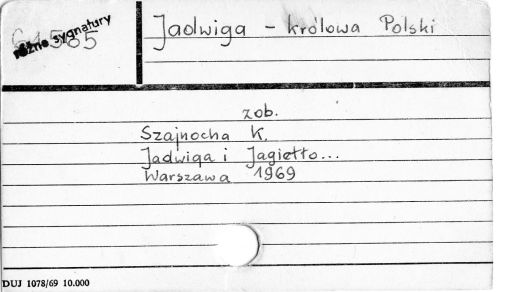 Jadwiga - królowa Polski
różne sygnatury
zob.
Szajnocha K.
Jadwiga i Jagiełło...
Warszawa 1969
DUJ 1078/69 10.000